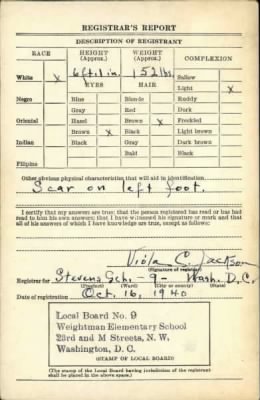 REGISTRAR'S REPORT
DESCRIPTION OF REGISTRANT
RACE HEIGHT (Approx.) WEIGHT (Approx.) COMPLEXION
White x 6 ft. 1 in. 152 lbs. Sallow
EYES HAIR Light x
Negro Blue Blonde Ruddy
Gray Red Dark
Oriental Hazel Brown x Freckled
Brown x Black Light brown
Indian Black Gray Dark brown
Bald Black
Filipino
Other obvious physical characteristics that will aid in identification
Scar on left foot.
I certify that my answers are true; that the person registered has read or has had
read to him his own answers; that I have witnessed his signature or mark and that
all of his answers of which I have knowledge are true, except as follows:
Viola C. Jackson
(Signature of registrar)
Registrar for Stevens Sch. - 9 - Wash. D.C.
(Precinct) (Ward) (City or county) (State)
Date of registration Oct. 16, 1940
Local Board No. 9
Weightman Elementary School
23rd and M Streets, N.W.
Washington, D. C.
(STAMP OF LOCAL BOARD)
(The stamp of the Local Board having jurisdiction of the registrant
shall be placed in the above space.)